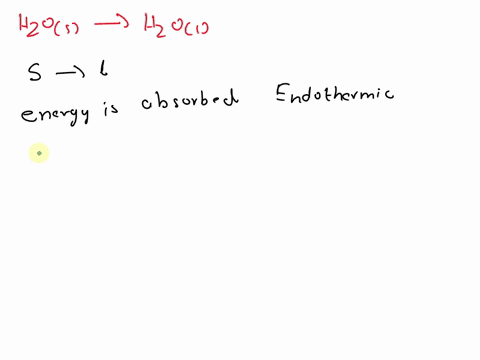 H2O(s) → H2O(l)
S → l
energy is absorbed Endothermic